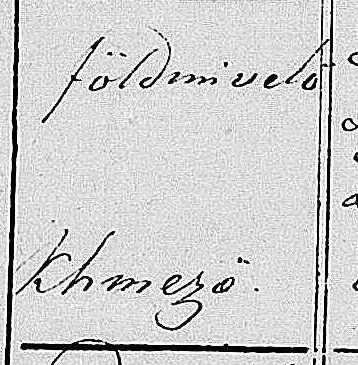 földmivelő
Khmező.